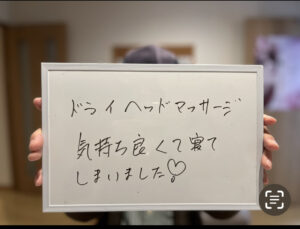 ドライヘッドマッサージ
気持ち良くて寝て
しまいました♡